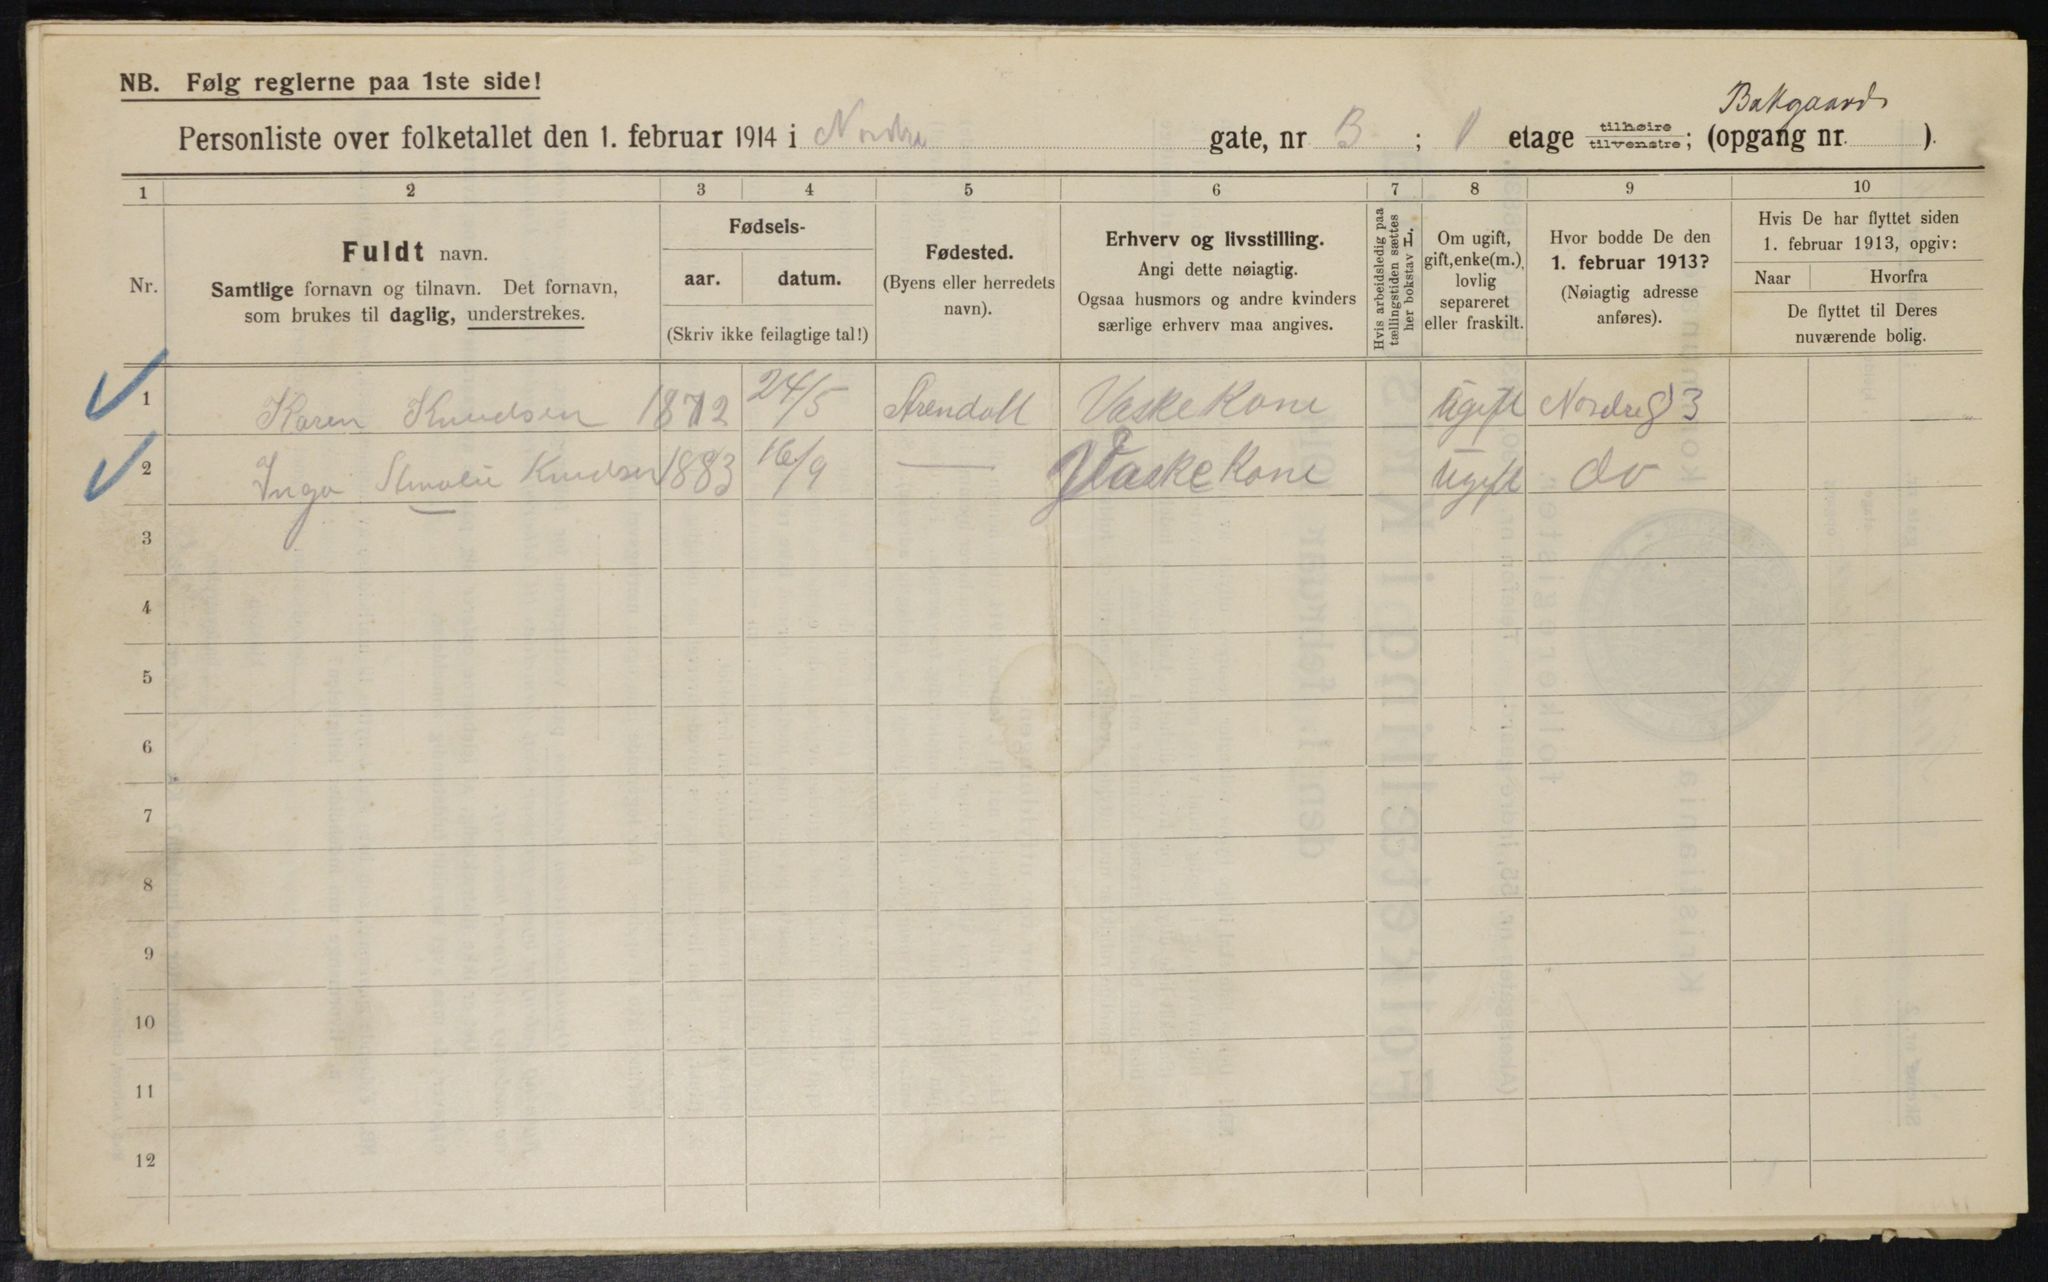 NB. Følg reglerne paa 1ste side!
Bakgaard
Personliste over folketallet den 1. februar 1914 i Nordre gate, nr B; 1 etage tilhøire tilvenstre; (opgang nr. ).
1 2 3 4 5 6 7 8 9 10
Nr.
Fuldt navn.
Samtlige fornavn og tilnavn. Det fornavn,
som brukes til daglig, understrekes.
Fødsels-
aar. datum.
(Skriv ikke feilagtige tal!)
Fødested.
(Byens eller herredets
navn).
Erhverv og livsstilling.
Angi dette nøiagtig.
Ogsaa husmors og andre kvinders
særlige erhverv maa angives.
Hvis arbeidsledig paa
tællingstiden sættes
her bokstav L.
Om ugift,
gift, enke(m.),
lovlig
separeret
eller fraskilt.
Hvor bodde De den
1. februar 1913?
(Nøiagtig adresse
anføres).
Hvis De har flyttet siden
1. februar 1913, opgiv:
Naar Hvorfra
De flyttet til Deres
nuværende bolig.
1 Karen Knudsen 1872 24/5 Arendall Vaske Kone Ugift Nordreg 3
2 Inga Amalie Knudsen 1883 16/9 — Vaske Kone Ugift do
3
4
5
6
7
8
9
10
11
12